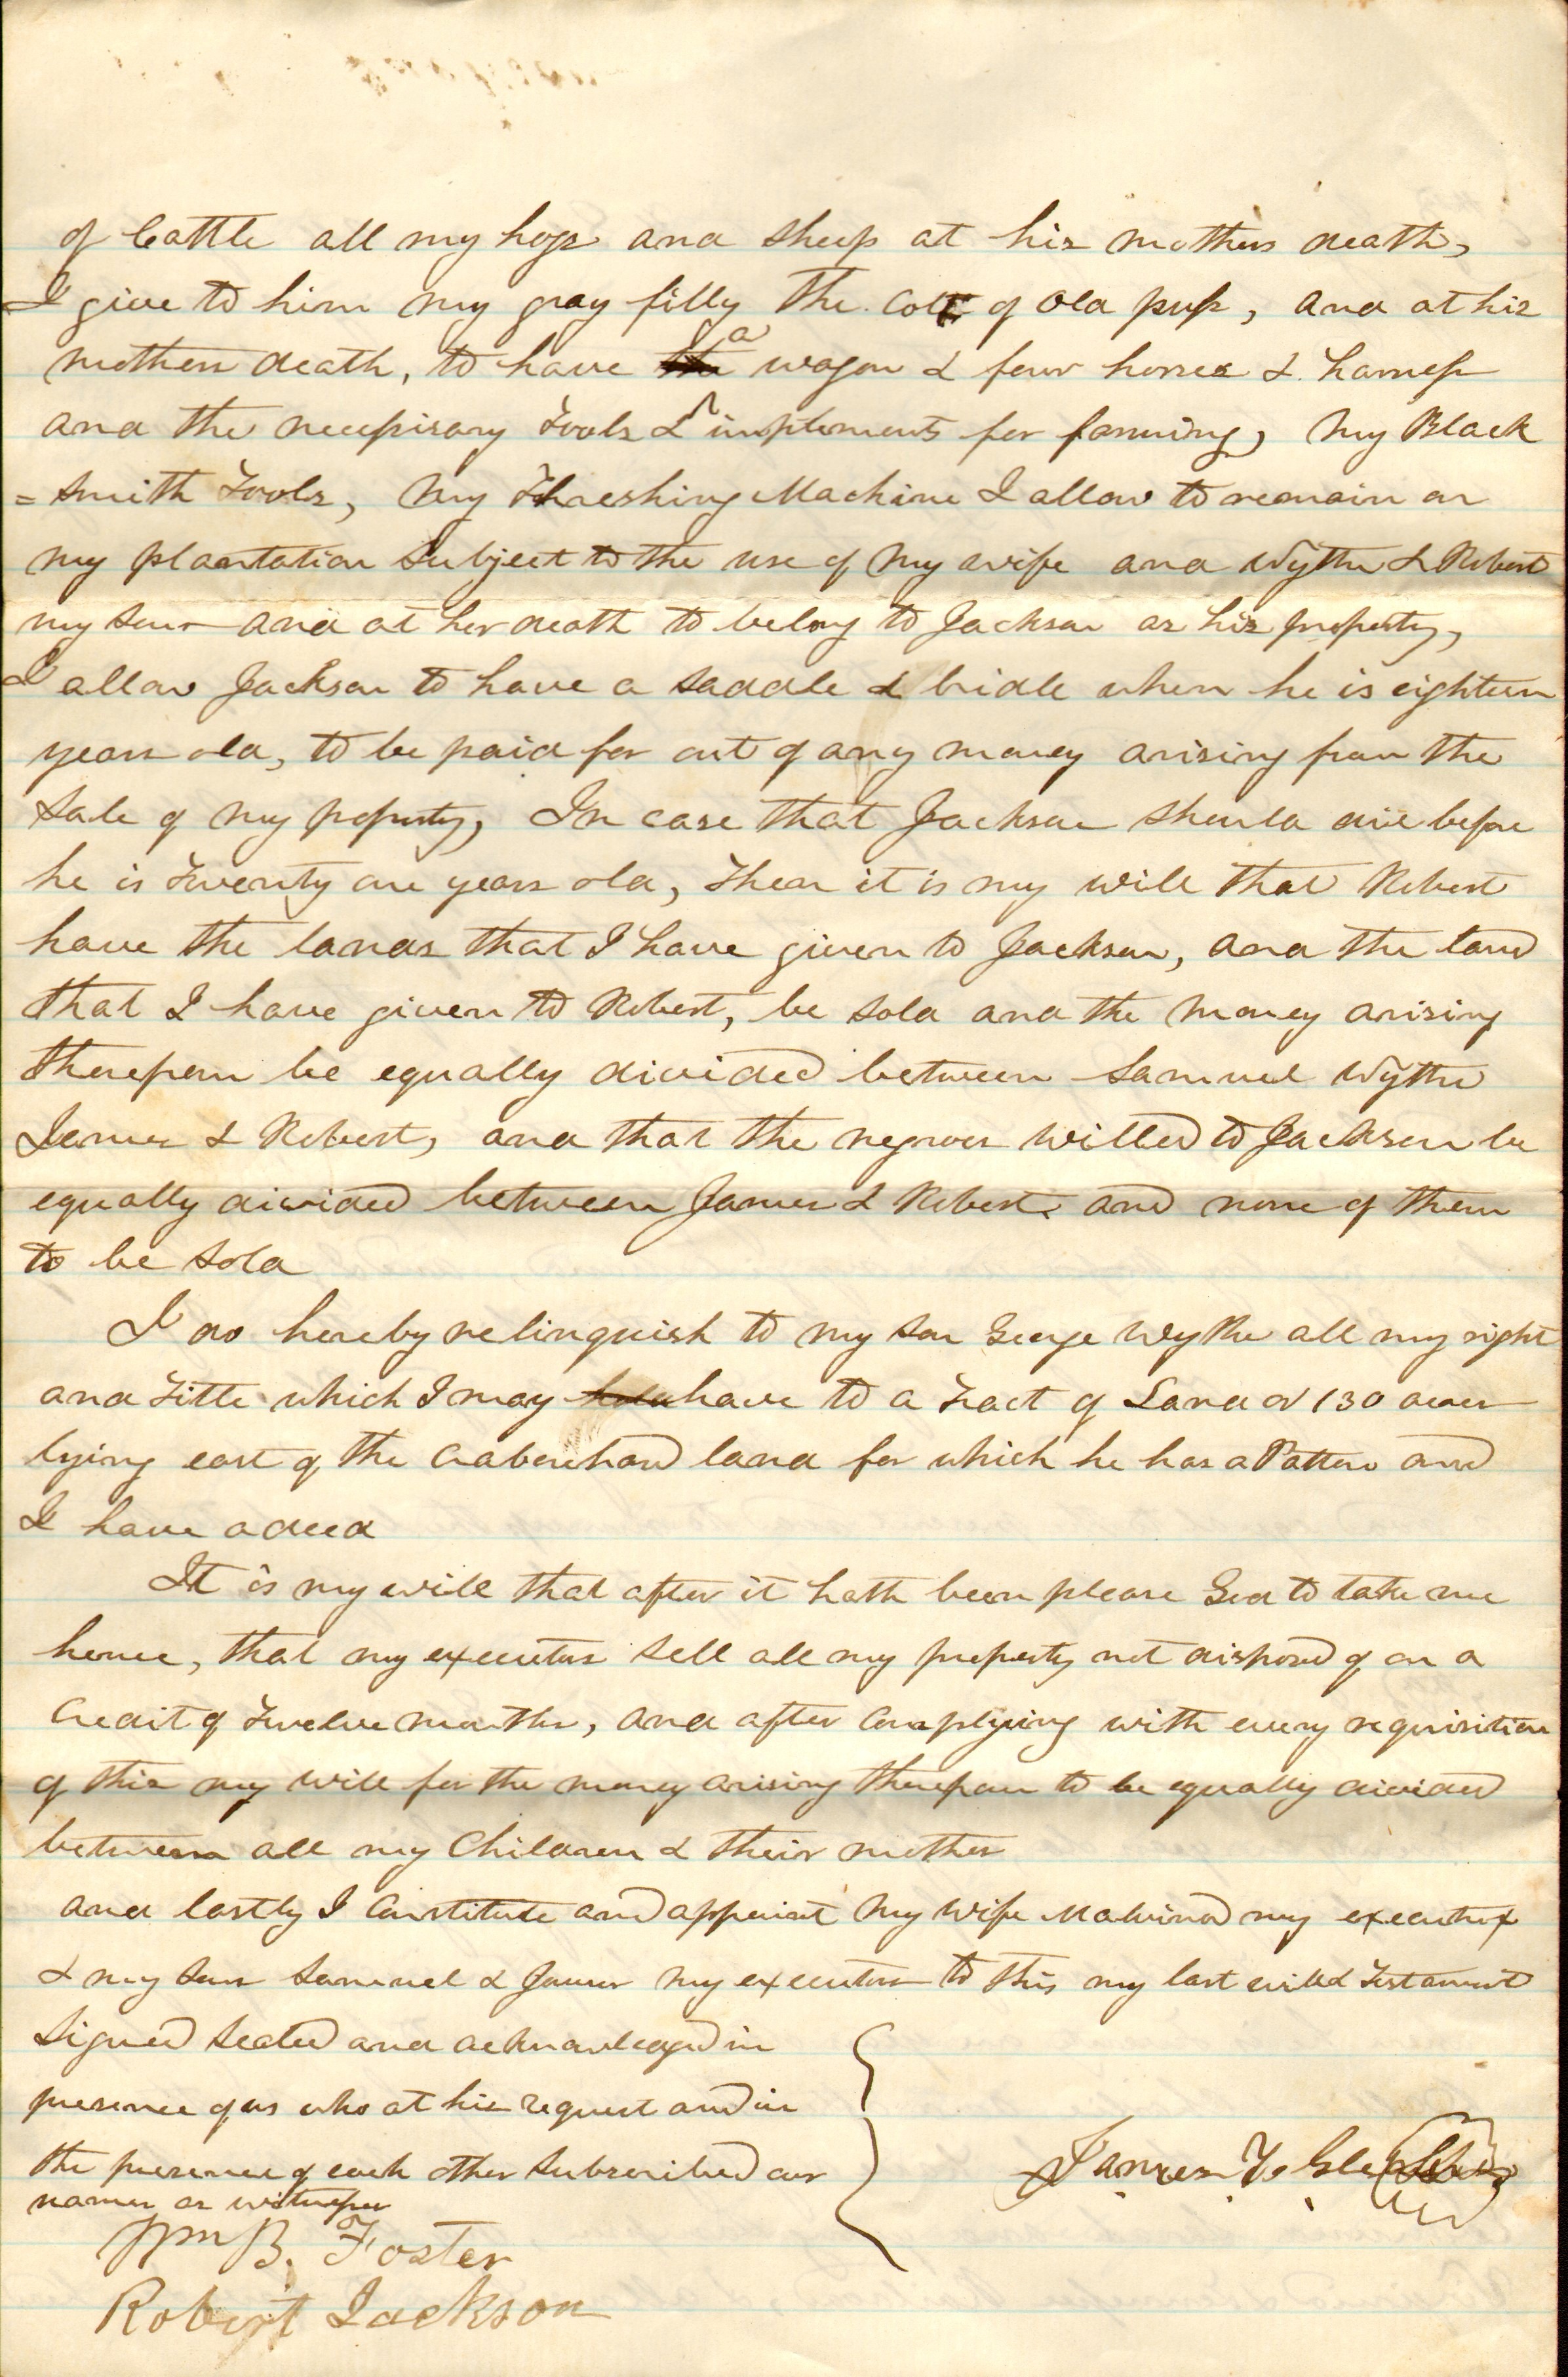 of Cattle all my hogs and sheep at his mothers death,
I give to him my gray filly the colt of old pup, and at his
mothers death, to have a wagon & four horses & harness
and the necessary Tools & implements for farming, My Black
=smith Tools, My Threshing Machine I allow to remain on
my plantation subject to the use of my wife and Wythe & Robert
my sons and at her death to belong to Jackson as his property,
I allow Jackson to have a saddle & bridle when he is eighteen
years old, to be paid for out of any money arising from the
sale of my property, In case that Jackson should die before
he is Twenty one years old, Then it is my will that Robert
have the lands that I have given to Jackson, and the land
that I have given to Robert, be sold and the money arising
therefrom be equally divided between Samuel Wythe
James & Robert, and that the negroes willed to Jackson be
equally divided between James & Robert and none of them
to be sold
I do hereby relinquish to my son George Wythe all my right
and Title which I may have to a Tract of Land of 130 acres
lying east of the land for which he has a Patten and
I have a deed
It is my will that after it hath been please God to take me
hence, that my executors sell all my property not disposed of on a
Credit of Twelve months, and after complying with every requisition
of this my will for the money arising therefrom to be equally divided
between all my Children & their mother
and lastly I constitute and appoint My Wife Malvina my executrix
& my sons Samuel & James my executors to this my last will & Testament
Signed Sealed and acknowledged in
presence of us who at his request and in
the presence of each other subscribed our
names as witnesses
James T.
Wm B. Foster
Robert Jackson